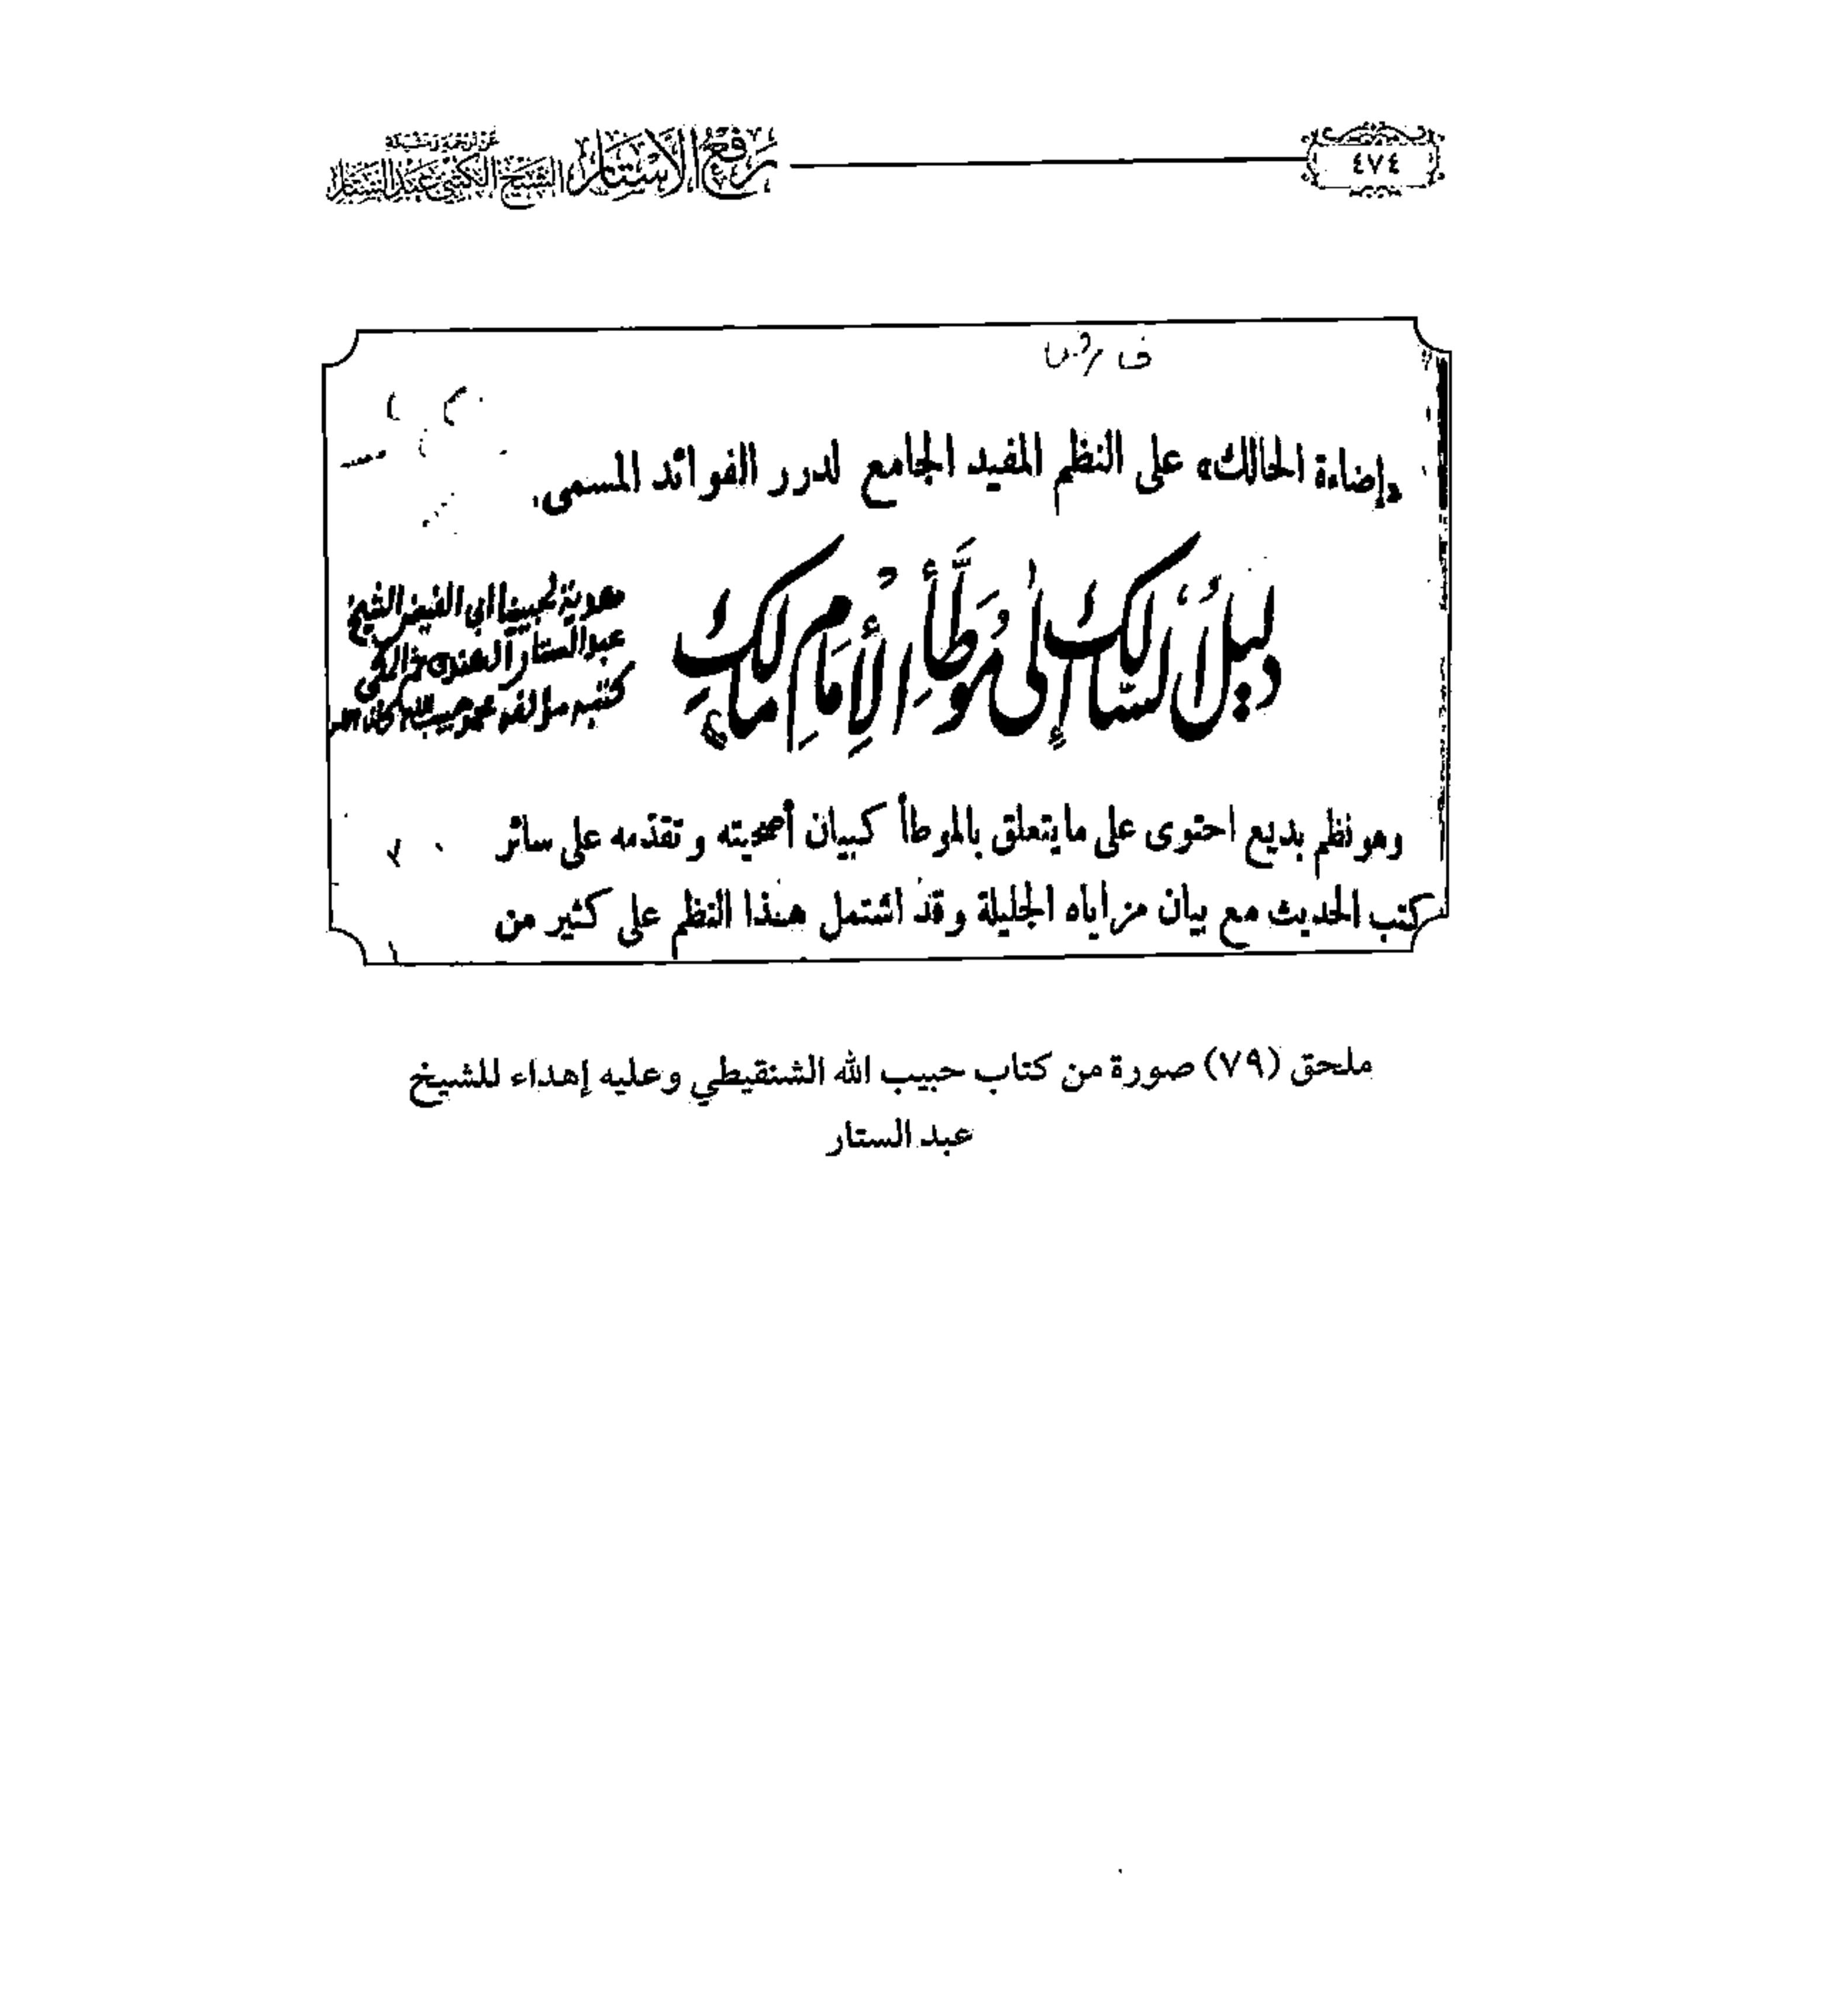 ٤٧٤
رفع الأستار
الشيخ الكتبي عبد الستار
«إضاءة الحالك» على النظم المفيد الجامع لدرر الفوائد المسمى.
دَلِيلُ السَّالِكِ إِلَى مُوَطَّأِ الْإِمَامِ مَالِكٍ
هدية لمحبنا ابى الفيض الشيخ
عبد الستار الهندى المكى
كتبه مؤلفه محمد حبيب الله
وهو نظم بديع احتوى على ما يتعلق بالموطأ كبيان أصحيته وتقدّمه على سائر
كتب الحديث مع بيان مزاياه الجليلة وقد اشتمل هذا النظم على كثير من
ملحق (٧٩) صورة من كتاب حبيب الله الشنقيطي وعليه إهداء للشيخ
عبد الستار